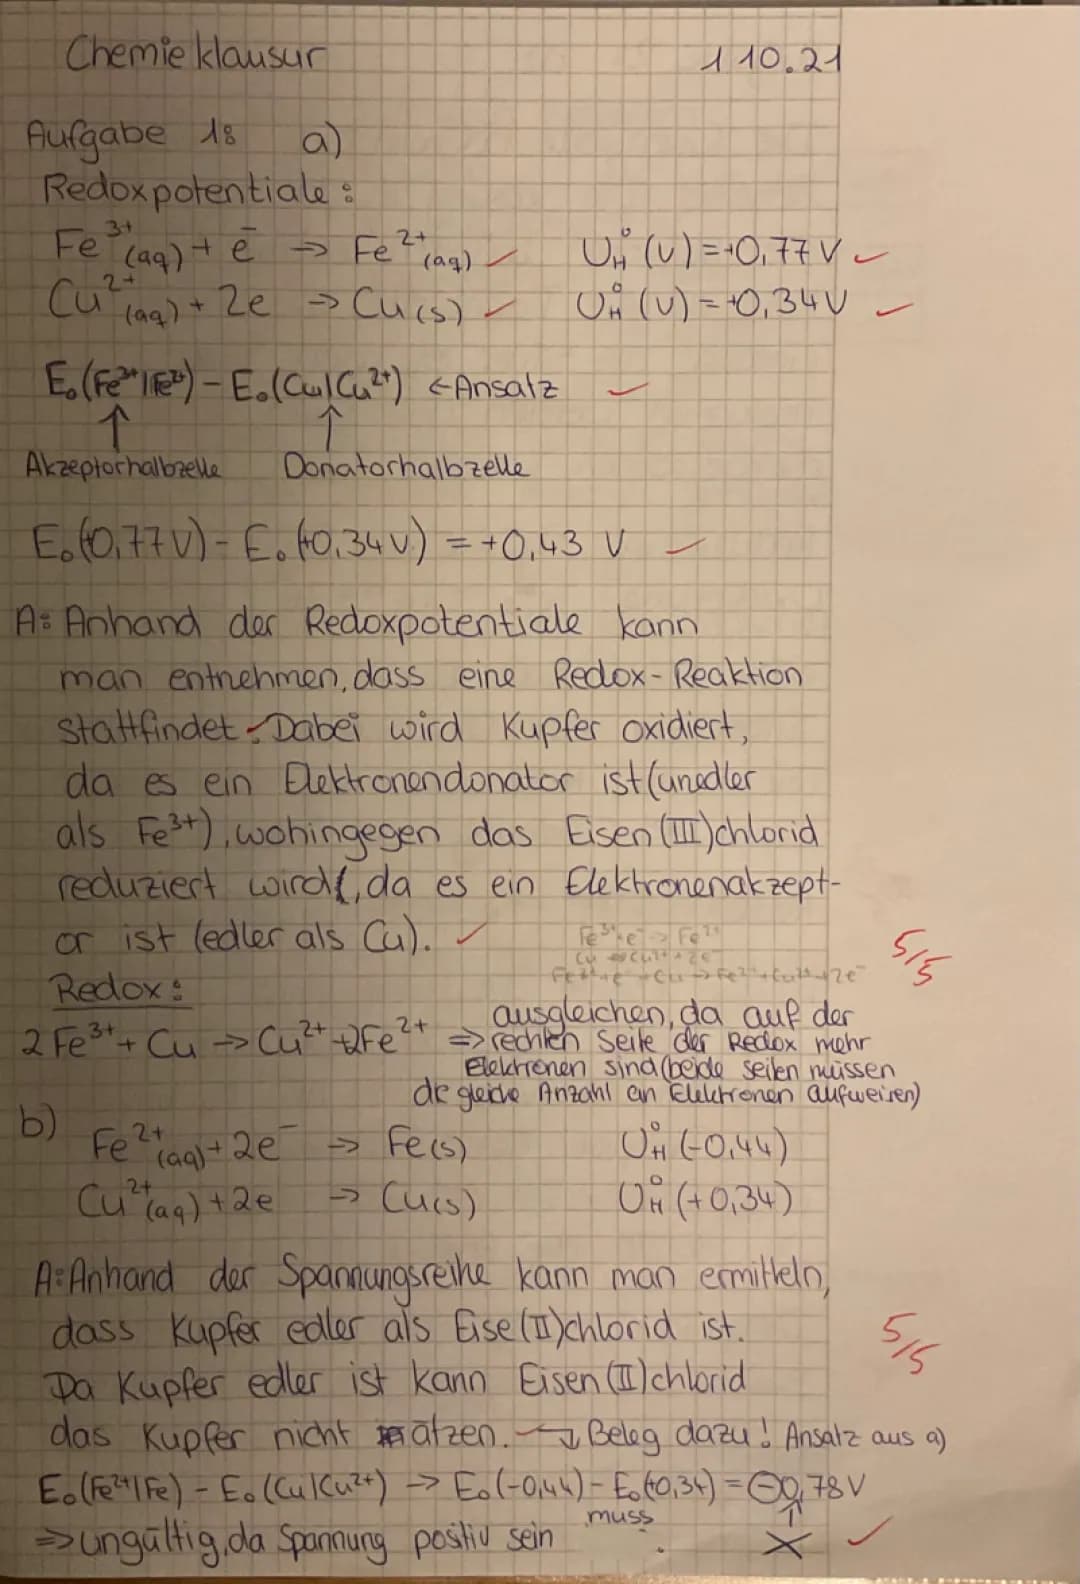 Chemieklausur 1 10.21
Aufgabe 1: a)
Redoxpotentiale:
Fe³⁺(aq) + e⁻ → Fe²⁺(aq) ✓ U°H (V) = +0,77 V ✓
Cu²⁺(aq) + 2e → Cu(s) ✓ U°H (V) = +0,34V ✓
E₀(Fe³⁺|Fe²⁺) - E₀(Cu|Cu²⁺) ← Ansatz ✓
↑ ↑
Akzeptorhalbzelle Donatorhalbzelle
E₀(+0,77V) - E₀(+0,34V) = +0,43 V ✓
A: Anhand der Redoxpotentiale kann
man entnehmen, dass eine Redox-Reaktion
stattfindet. Dabei wird Kupfer oxidiert,
da es ein Elektronendonator ist (unedler
als Fe³⁺), wohingegen das Eisen (III)chlorid
reduziert wird, da es ein Elektronenakzept-
or ist (edler als Cu). ✓
Fe³⁺ + e⁻ → Fe²⁺
Cu → Cu²⁺ + 2e⁻
Fe³⁺ + e⁻ + Cu → Fe²⁺ + Cu²⁺ + 2e⁻
5/5
Redox:
2 Fe³⁺ + Cu → Cu²⁺ + 2Fe²⁺ ⇒ ausgleichen, da auf der
rechten Seite der Redox mehr
Elektronen sind (beide seiten müssen
die gleiche Anzahl an Elektronen aufweisen)
b)
Fe²⁺(aq) + 2e⁻ → Fe(s) U°H (-0,44)
Cu²⁺(aq) + 2e → Cu(s) U°H (+0,34)
A: Anhand der Spannungsreihe kann man ermitteln,
dass Kupfer edler als Eise(II)chlorid ist.
5/5
Da Kupfer edler ist kann Eisen (II)chlorid
das Kupfer nicht ätzen. ↴ Beleg dazu! Ansatz aus a)
E₀(Fe²⁺|Fe) - E₀(Cu|Cu²⁺) → E₀(-0,44) - E₀(+0,34) = -0,78V
⇒ ungültig, da Spannung positiv sein muss. ✓